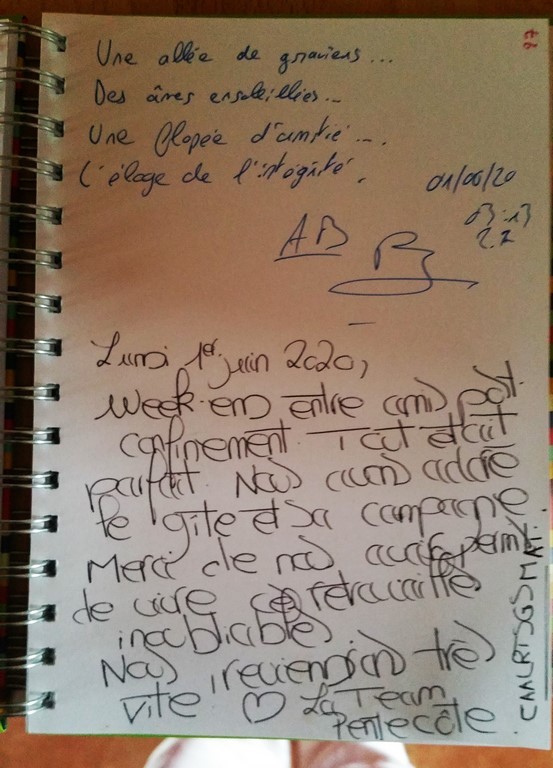 27
Une allée de graviers...
Des âmes ensoleillées...
Une flopée d'amitié....
L'éloge de l'intégrité.
01/06/20
AB
Lundi 1er juin 2020,
Week-end entre amis post-
confinement. Tout était
parfait. Nous avons adoré
le gîte et sa campagne
Merci de nous avoir permis
de vivre ces retrouvailles
inoubliables
Nous reviendrons très
vite ♡ La Team
Pentecôte.